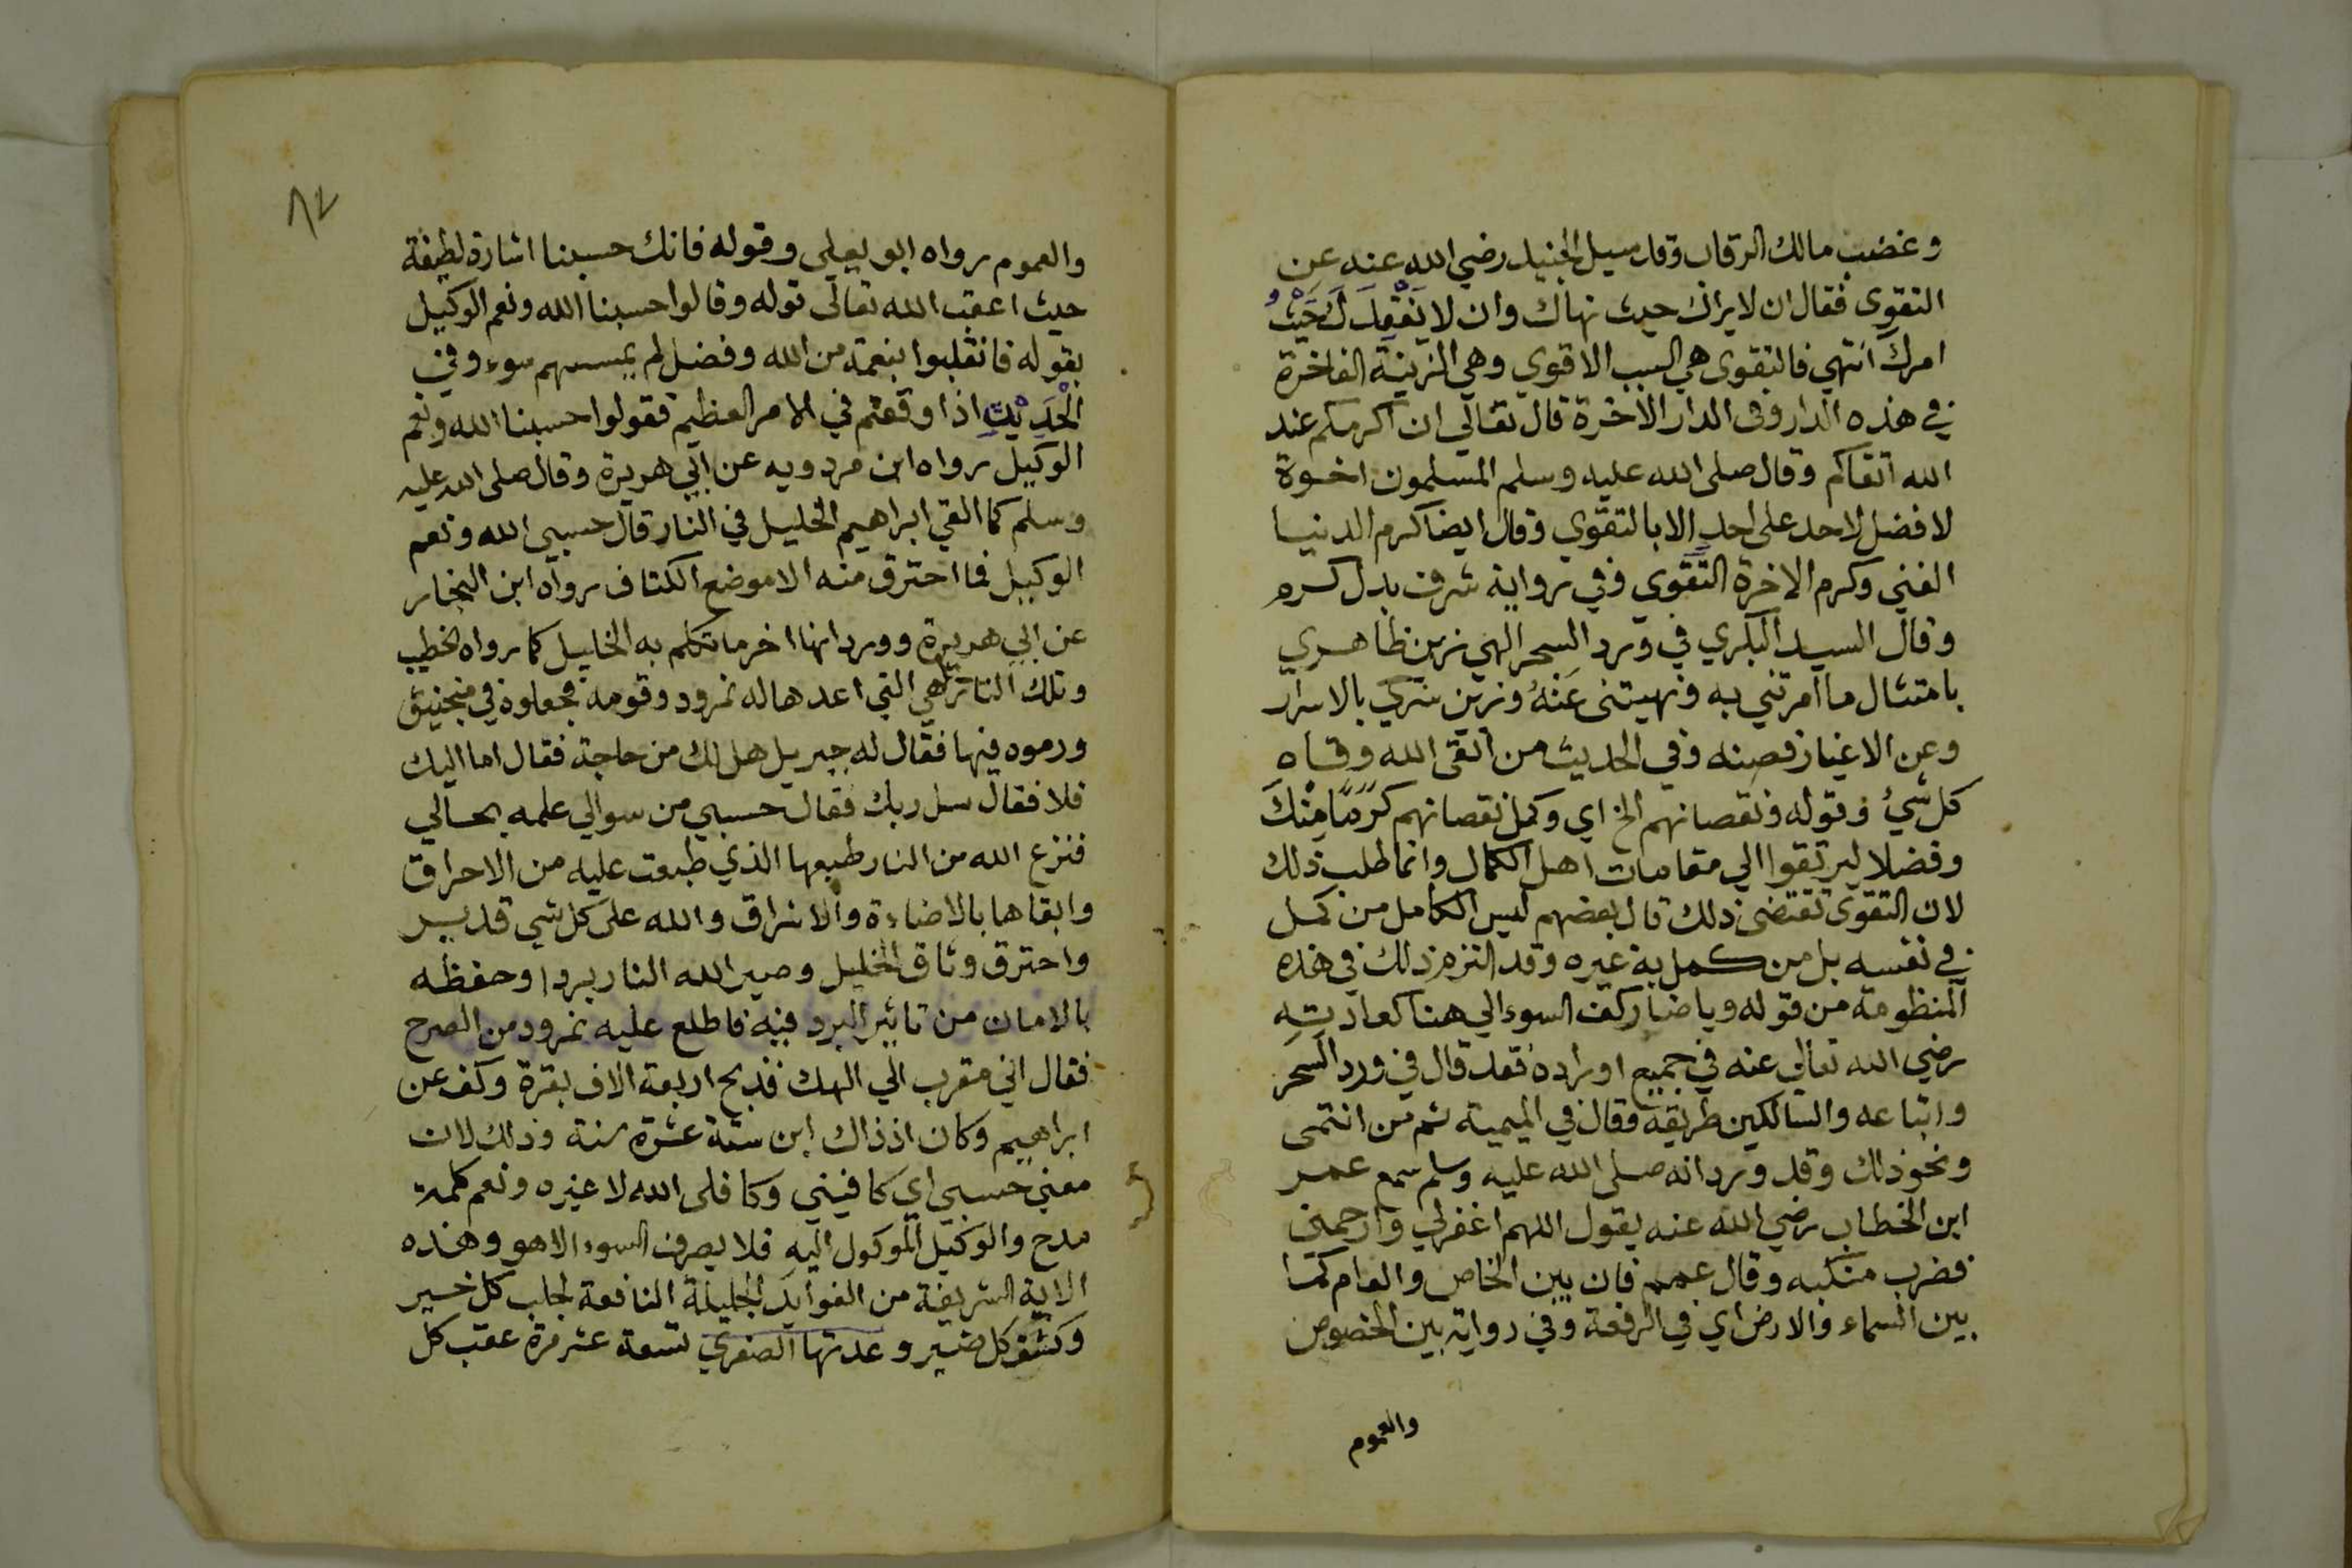 وغضب مالك الرقاب وقد سيل الجنيد رضي الله عنه عن
التقوى فقال ان لا يراك حيث نهاك وان لا يَفْقِدَكَ حَيْثُ
امرك انتهي فالتقوى هي السبب الاقوي وهي الزينة الفاخرة
في هذه الدار وفى الدار الاخرة قال تعالي ان اكرمكم عند
الله اتقاكم وقال صلى الله عليه وسلم المسلمون اخوة
لا فضل لاحد على احد الا بالتقوي وقال ايضا كرم الدنيا
الغني وكرم الاخرة التقوى وفي رواية شرف بدل كرم
وقال السيد البكري في ورد السحر الهي زين ظاهري
بامتثال ما امرتني به ونهيتنى عَنْهُ وزين سري بالاسرار
وعن الاغيار فصنه وفي الحديث من اتقى الله وقاه
كل شيء وقوله ونقصانهم الخ اي وكمل نقصانهم كَرَمًا مِنْكَ
وفضلا ليرتقوا الي مقامات اهل الكمال وانما طلب ذلك
لان التقوى تقتضى ذلك قال بعضهم ليس الكامل من كمل
في نفسه بل من كمل به غيره وقد التزم ذلك في هذه
المنظومة من قوله ويا ضار كف السوء الي هنا كعادته
رضي الله تعالي عنه في جميع اوراده فقد قال في ورد السحر
واتباعه والسالكين طريقه وقال في الميمية ثم من انتمى
ونحو ذلك وقد ورد انه صلى الله عليه وسلم سمع عمر
ابن الخطاب رضي الله عنه يقول اللهم اغفرلي وارحمني
فضرب منكبه وقال عمم فان بين الخاص والعام كما
بين السماء والارض اي في الرفعة وفي رواية بين الخصوص
والعموم
٨٢
والعموم رواه ابو يعلى وقوله فانك حسبنا اشارة لطيفة
حيث اعقب الله تعالى قوله وقالوا حسبنا الله ونعم الوكيل
بقوله فانقلبوا بنعمة من الله وفضل لم يمسسهم سوء وفي
الْحَدِيْثِ اذا وقعتم في الامر العظيم فقولوا حسبنا الله ونعم
الوكيل رواه ابن مردويه عن ابي هريرة وقال صلى الله عليه
وسلم لما القي ابراهيم الخليل في النار قال حسبي الله ونعم
الوكيل فما احترق منه الا موضع الكتاف رواه ابن النجار
عن ابي هريرة وورد انها اخر ما تكلم به الخليل كما رواه الخطيب
وتلك النار هي التي اعدها له نمرود وقومه فجعلوه في منجنيق
ورموه فيها فقال له جبريل هل لك من حاجة فقال اما اليك
فلا فقال سل ربك فقال حسبي من سوالي علمه بحالي
فنزع الله من النار طبعها الذي طبعت عليه من الاحراق
وابقاها بالاضاءة والاشراق والله على كل شي قدير
واحترق وثاق الخليل وصير الله النار بردا وحفظه
بالامان من تاثير البرد فيه فاطلع عليه نمرود من الصرح
فقال اني مقرب الي الهك فذبح اربعة الاف بقرة وكف عن
ابراهيم وكان اذ ذاك ابن ستة عشرة سنة وذلك لان
معني حسبي اي كافيني وكافلى الله لا غيره ونعم كلمة
مدح والوكيل الموكول اليه فلا يصرف السوء الا هو وهذه
الاية الشريفة من الفوايد الجليلة النافعة لجلب كل خير
وكشف كل ضير وعدتها الصغري تسعة عشر مرة عقب كل